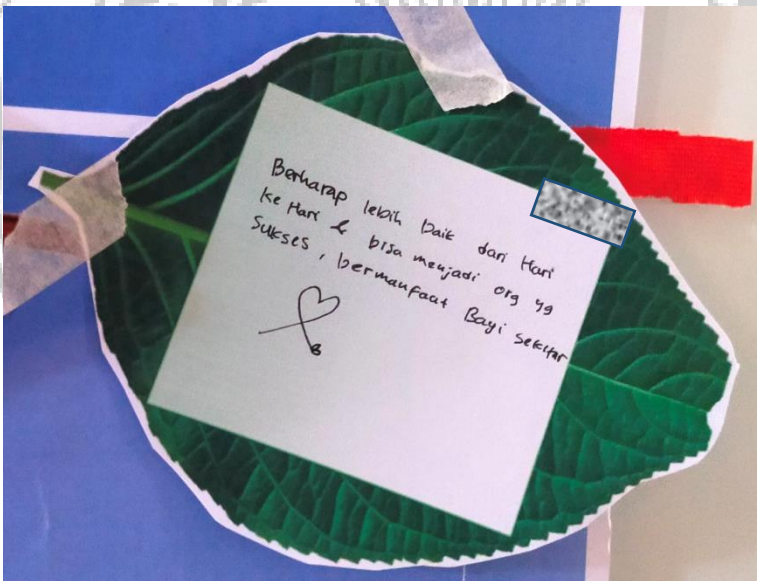 Berharap lebih baik dari Hari
ke Hari & bisa menjadi org yg
Sukses, bermanfaat Bagi sekitar